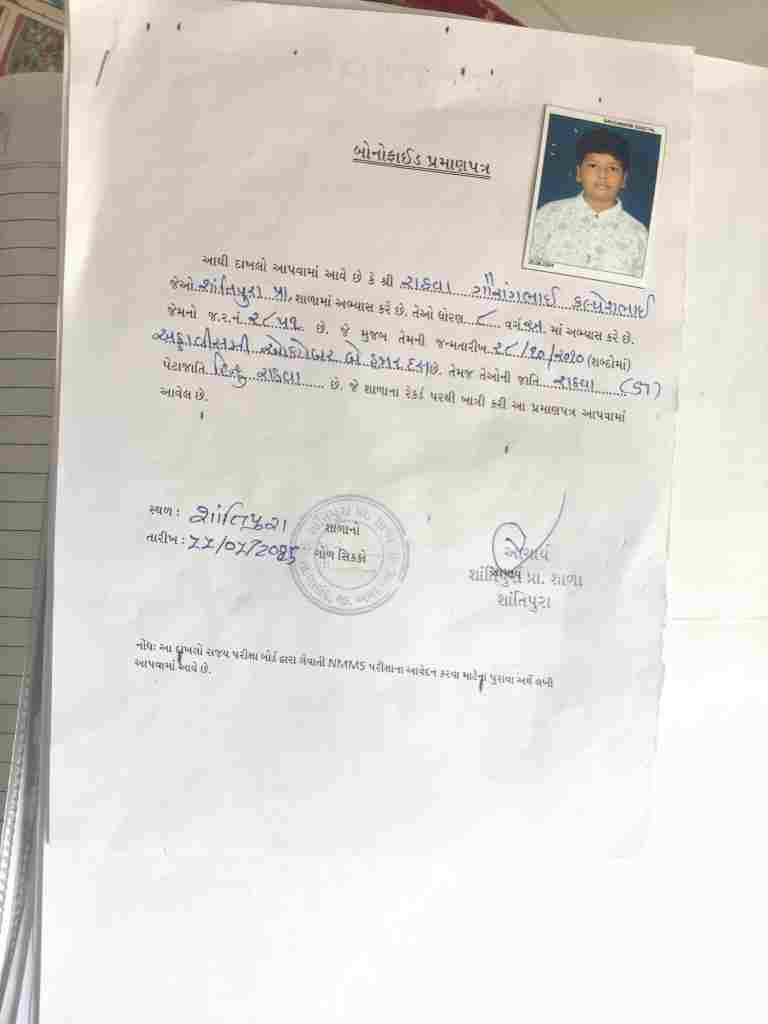 બોનોફાઈડ પ્રમાણપત્ર
આથી દાખલો આપવામાં આવે છે કે શ્રી રાઠવા ગૌરાંગભાઈ કલ્પેશભાઈ
જેઓ શાંતિપુરા પ્રા. શાળામાં અભ્યાસ કરે છે. તેઓ ધોરણ ૮ વર્ગ માં અભ્યાસ કરે છે.
જેમનો જ.ર.નં. ૨૮૫૧ છે. જે મુજબ તેમની જન્મતારીખ ૨૮/૧૦/૨૦૧૦ (શબ્દોમાં)
અઠ્ઠાવીસમી ઓક્ટોબર બે હજાર દસ છે. તેમજ તેઓની જાતિ રાઠવા (ST)
પેટાજાતિ હિન્દુ રાઠવા છે. જે શાળાના રેકર્ડ પરથી ખાત્રી કરી આ પ્રમાણપત્ર આપવામાં
આવેલ છે.
સ્થળ : શાંતિપુરા
શાળાનો
તારીખ : 11/07/2025
ગોળ સિક્કો
આચાર્ય
શાંતિપુરા પ્રા. શાળા
શાંતિપુરા
નોધઃ આ દાખલો રાજ્ય પરીક્ષા બોર્ડ દ્વારા લેવાતી NMMS પરીક્ષાના આવેદન કરવા માટેના પુરાવા અર્થે લખી
આપવામાં આવે છે.